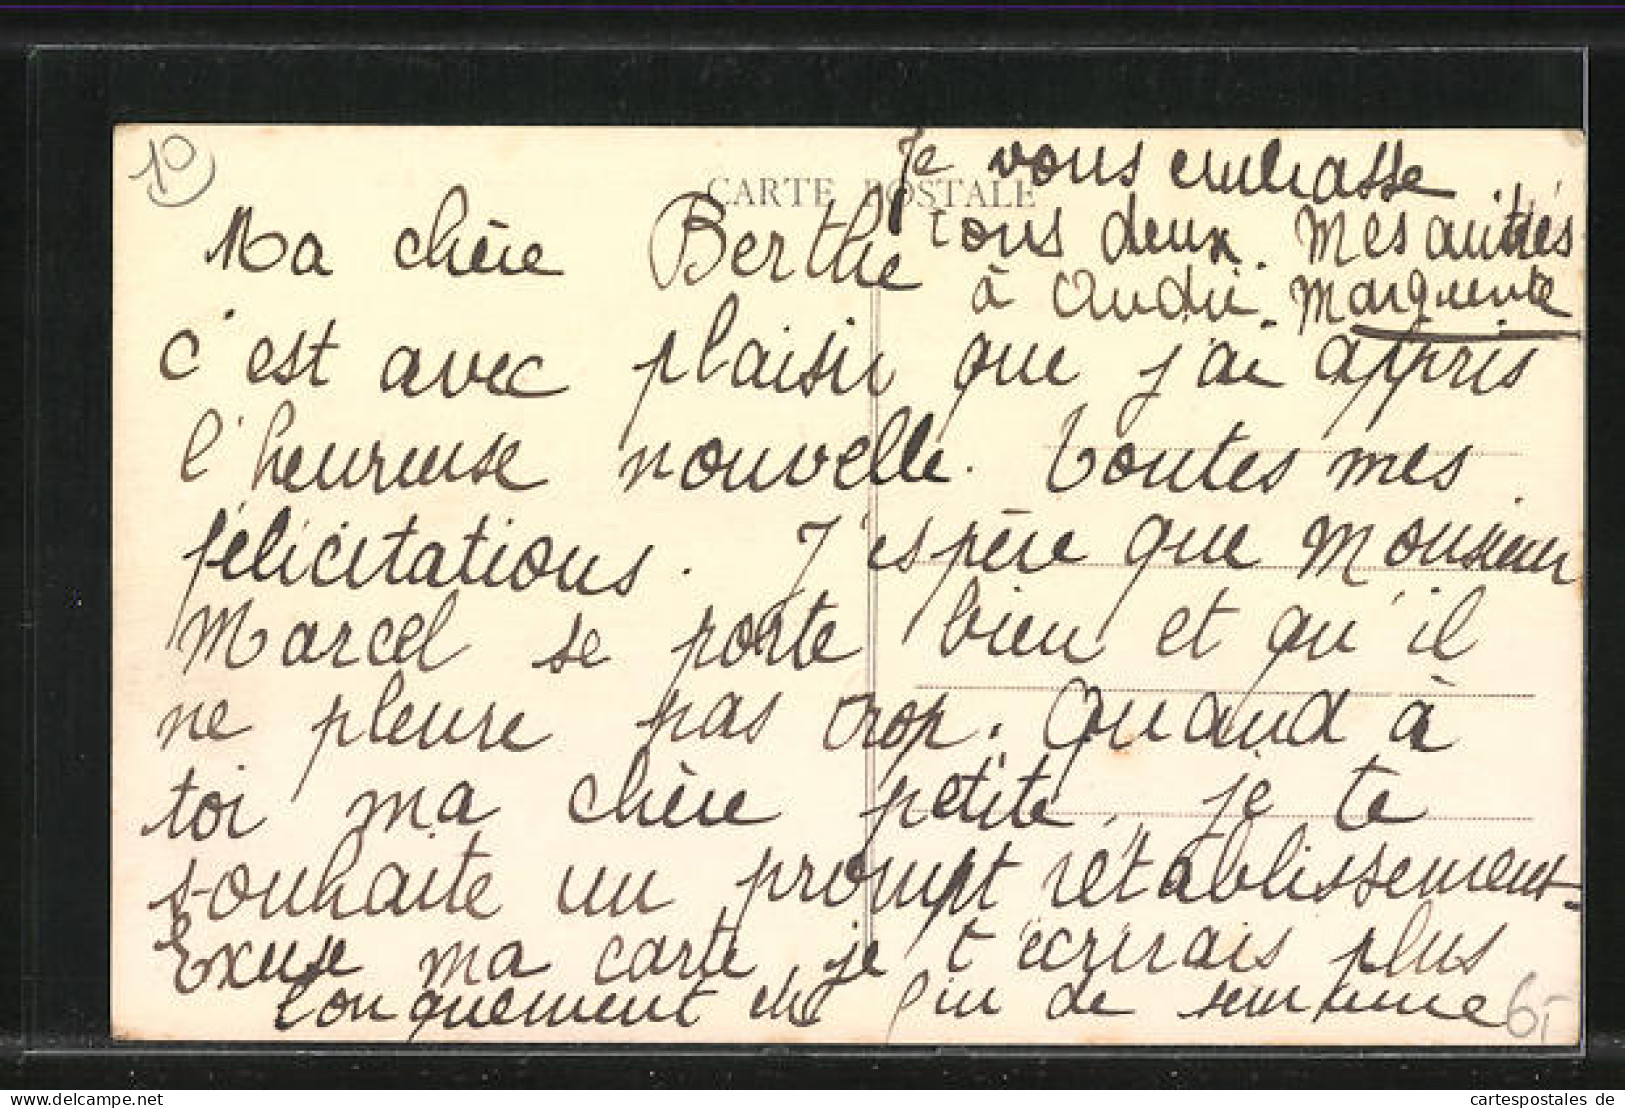 10
CARTE POSTALE
Ma chère Berthe
c'est avec plaisir que j'ai appris
l'heureuse nouvelle. Toutes mes
félicitations. J'espère que Monsieur
Marcel se porte bien et qu'il
ne pleure pas trop. Quand à
toi ma chère petite, je te
souhaite un prompt rétablissement.
Excuse ma carte, je t'écrirais plus
longuement en fin de semaine
Je vous embrasse
tous deux. Mes amitiés
à André. Marguerite
6,-
cartespostales de